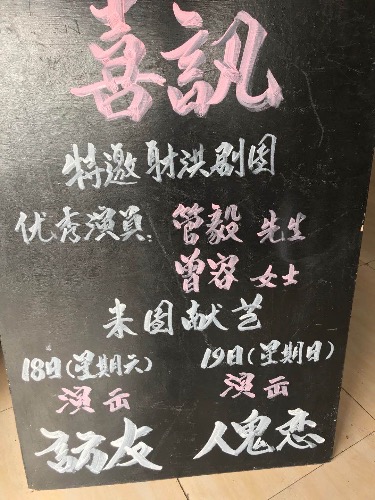 喜訊
特邀射洪剧团
优秀演員：管毅 先生
曾容 女士
来团献艺
18日(星期六) 19日(星期日)
演出 演出
訪友 人鬼恋